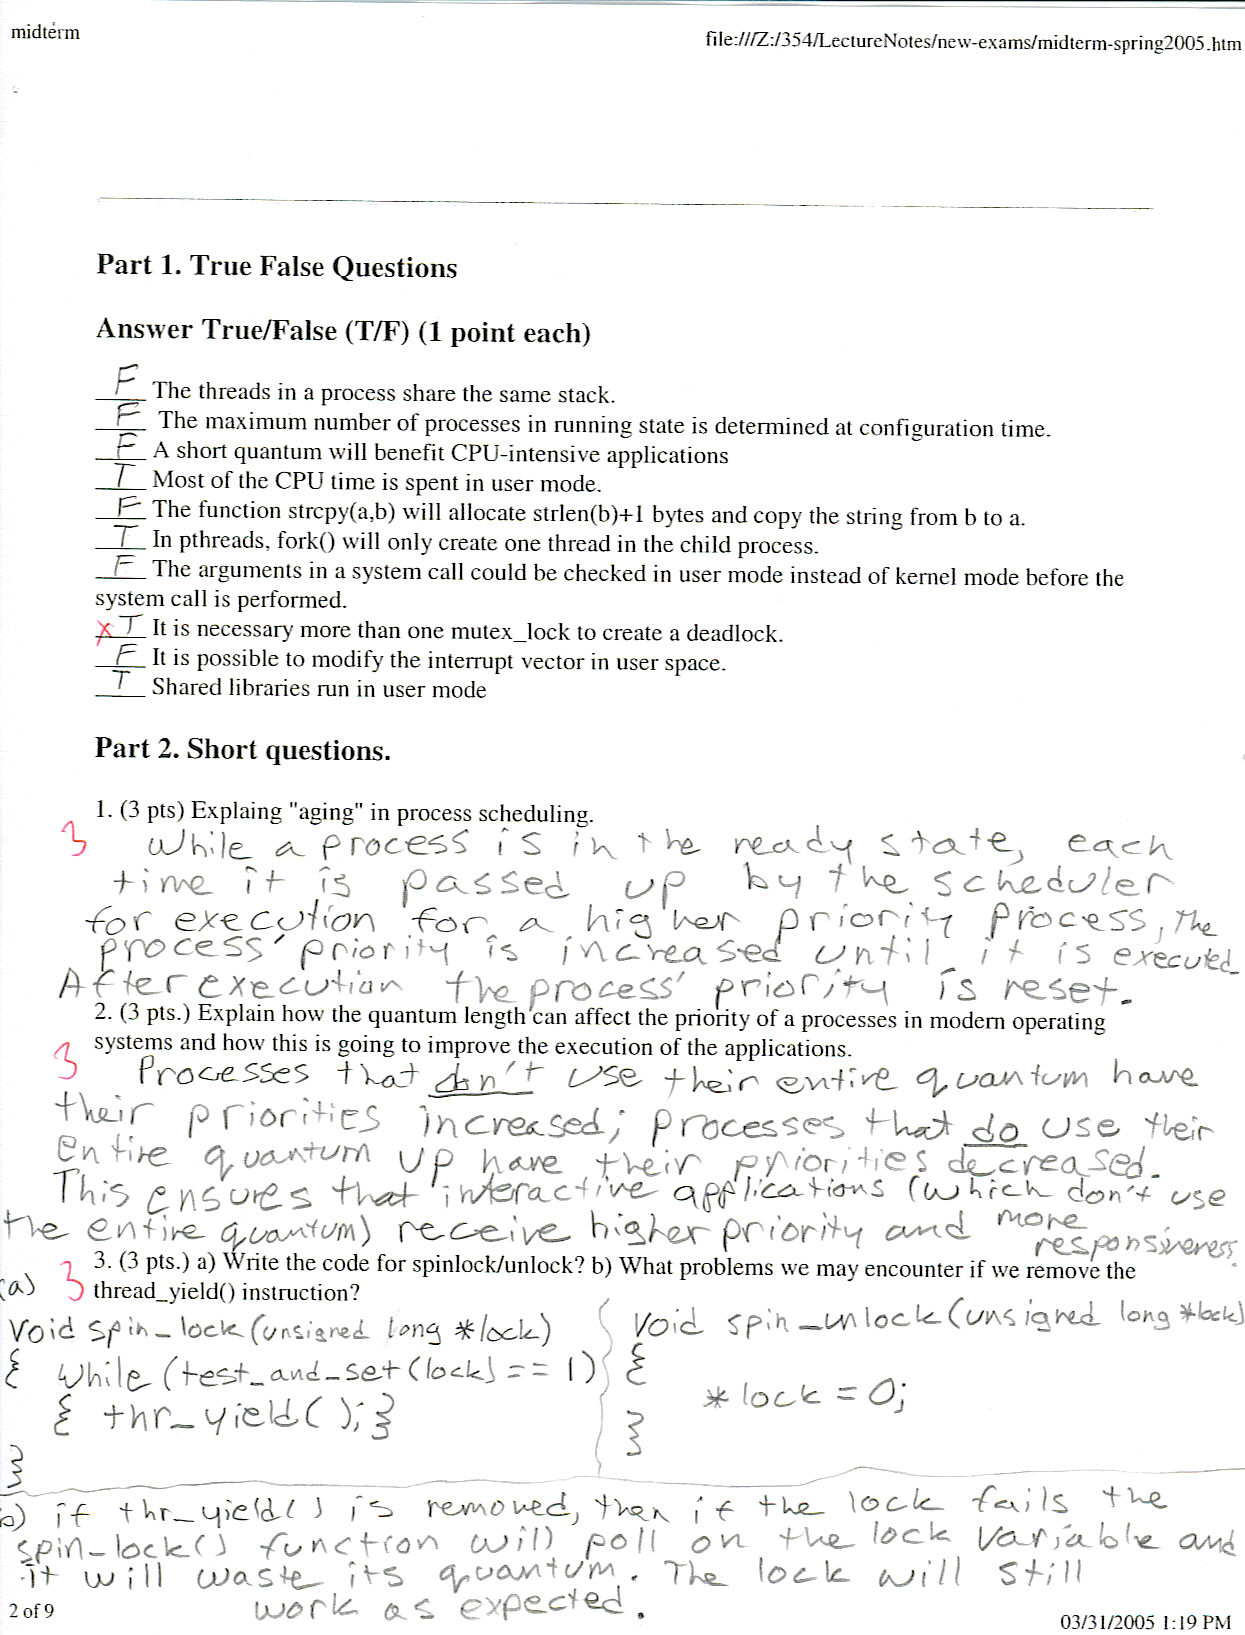 midterm
file:///Z:/354/LectureNotes/new-exams/midterm-spring2005.htm
Part 1. True False Questions
Answer True/False (T/F) (1 point each)
F The threads in a process share the same stack.
F The maximum number of processes in running state is determined at configuration time.
F A short quantum will benefit CPU-intensive applications
T Most of the CPU time is spent in user mode.
F The function strcpy(a,b) will allocate strlen(b)+1 bytes and copy the string from b to a.
T In pthreads, fork() will only create one thread in the child process.
F The arguments in a system call could be checked in user mode instead of kernel mode before the
system call is performed.
X T It is necessary more than one mutex_lock to create a deadlock.
F It is possible to modify the interrupt vector in user space.
T Shared libraries run in user mode
Part 2. Short questions.
1. (3 pts) Explaing "aging" in process scheduling.
3 While a process is in the ready state, each
time it is passed up by the scheduler
for execution for a higher priority process, the
process' priority is increased until it is executed.
After execution the process' priority is reset.
2. (3 pts.) Explain how the quantum length can affect the priority of a processes in modern operating
3 systems and how this is going to improve the execution of the applications.
Processes that don't use their entire quantum have
their priorities increased; processes that do use their
entire quantum up have their priorities decreased.
This ensures that interactive applications (which don't use
the entire quantum) receive higher priority and more
responsiveness.
3. (3 pts.) a) Write the code for spinlock/unlock? b) What problems we may encounter if we remove the
(a) 3 thread_yield() instruction?
void spin_lock(unsigned long *lock)
{ while (test_and_set(lock) == 1)
{ thr_yield(); }
}
void spin_unlock(unsigned long *lock)
{
*lock = 0;
}
b) if thr_yield() is removed, then if the lock fails the
spin_lock() function will poll on the lock variable and
it will waste its quantum. The lock will still
work as expected.
2 of 9
03/31/2005 1:19 PM